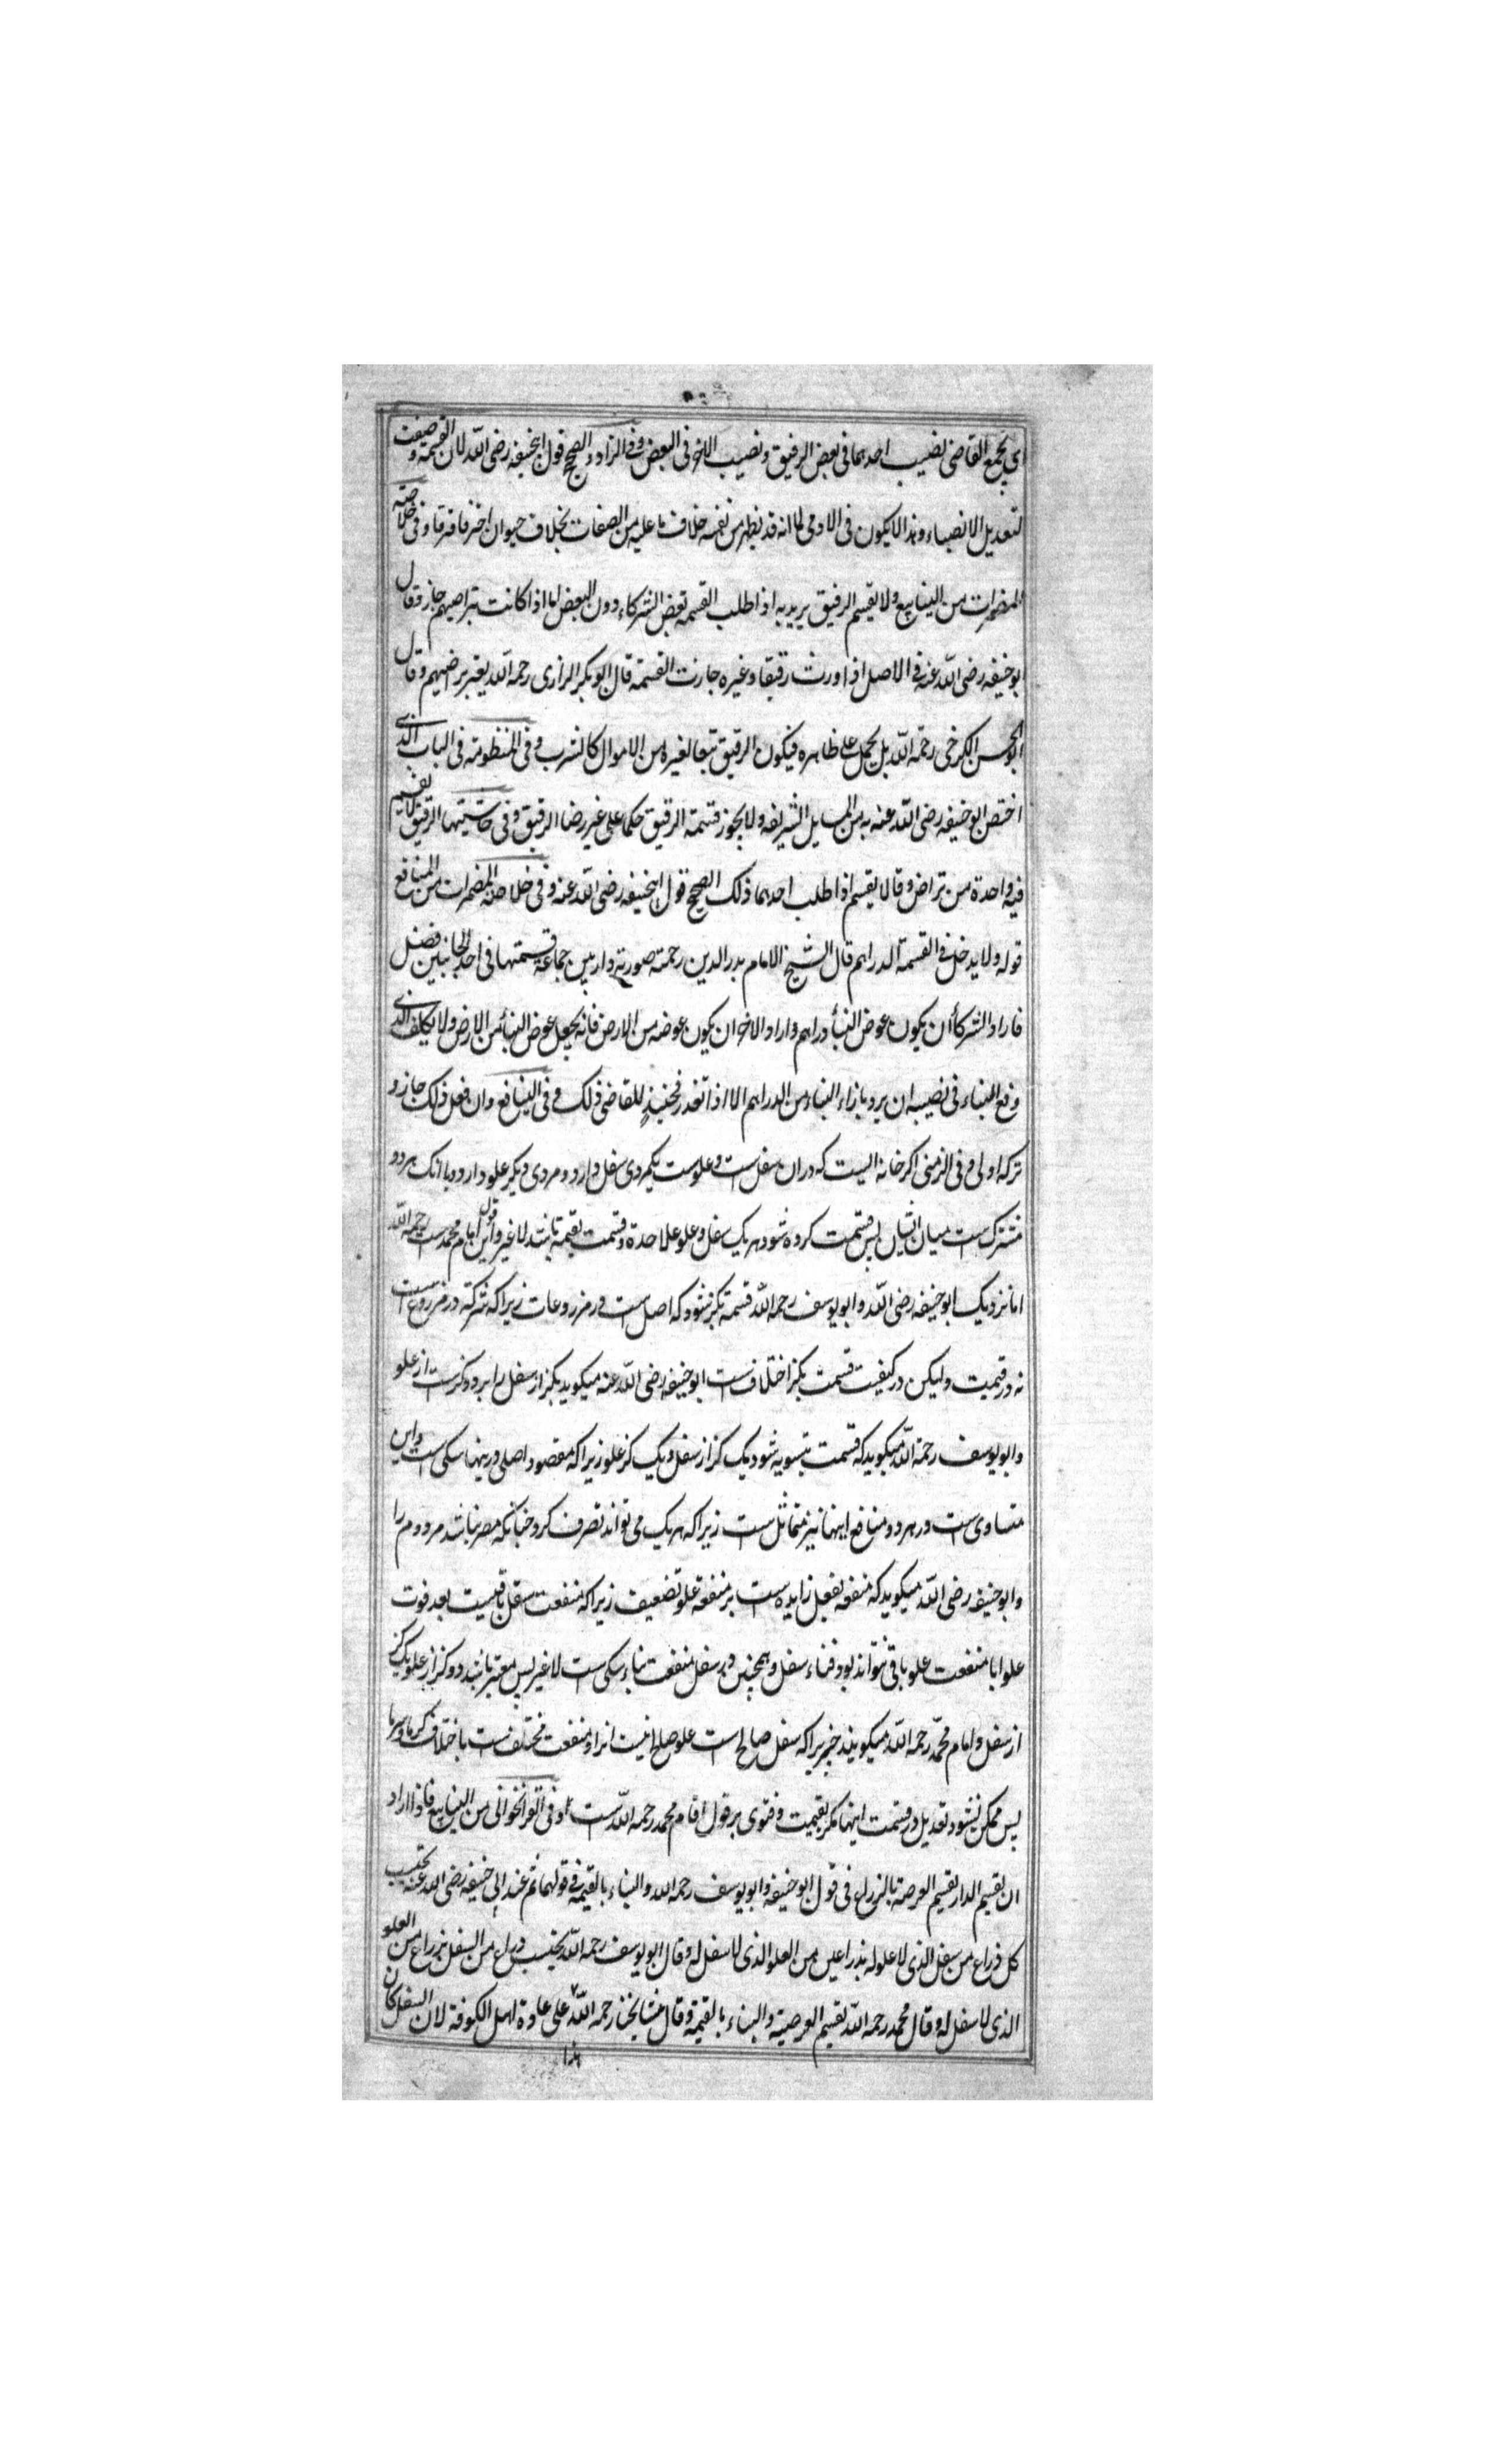 ای یجمع القاضی نصیب احدهما فی بعض الرقیق و نصیب الاخر فی البعض و فی الزاد و الصحیح قول ابیحنیفه رضی الله لان القسمة وضعت
لتعدیل الانصباء و هذا لا یکون فی الادمی لما انه قد یظهر من نفسه خلاف ما علیه من الصفات بخلاف حیوان اخر فافترقا و فی خلاصة
المضمرات من الینابیع و لا یقسم الرقیق یرید به اذا طلب القسمه بعض الشرکاء دون البعض اما اذا کانت بتراضیهم جاز و قال
ابو حنیفه رضی الله عنه فی الاصل اذا ورث رقیقا و غیره جازت القسمة قال ابو بکر الرازی رحمه الله یعتبر رضیهم و قال
ابو الحسن الکرخی رحمة الله بل یحمل علی ظاهره فیکون الرقیق تبعا لغیره من الاموال کالشرب و فی المنظومة فی الباب الذی
اختص ابو حنیفه رضی الله عنه به من المسایل الشریفه و لا یجوز قسمة الرقیق حکما علی غیر رضا الرقیق و فی حاشیتها الرقیق لا یقسم
فیه واحدة من تراض و قالا یقسم اذا طلب احدهما ذلک الصحیح قول ابیحنیفه رضی الله عنه و فی خلاصة المضمرات من المنافع
قوله و لا یدخل فی القسمة الدراهم قال الشیخ الامام بدر الدین رحمة صورته دار بین جماعة قسمتها فی احد الجانبین فضل
فاراد الشرکأ ان یکون عوض البنأ دراهم و اراد الاخر ان یکون عوضه من الارض فانه یجعل عوض البنأ من الارض و لا یکلف الذی
وقع البناء فی نصیبه ان یرد بازاء البناء من الدراهم الا اذا تعذر فحینئذٍ للقاضی ذلک و فی الینافع و ان فعل ذلک جاز و
ترکه اولی و فی الزمنی اکر خانه الیست که دران سفل ست و علوست یکمردی سفل دارد و مردی دیکر علو دارد و باانک هر دو
مشترک ست میان ایشان پس قسمت کرده شود هر یک سفل و علو علاحدة و قسمت بقیمة باشد لا غیر و این قول امام محمد ست رحمه الله
اما نزدیک ابو حنیفه رضی الله و ابو یوسف رحمه الله قسمة بکز شود که اصل ست در مزروعات زیرا که شرکة در مزروع ست
نه در قیمت و لیکن در کیفیت قسمت بکز اختلاف ست ابو حنیفه رضی الله عنه میکوید یکز از سفل برابر دو کزست از علو
و ابو یوسف رحمة الله میکوید که قسمت بتسویه شود یک کز از سفل و یک کز علو زیرا که مقصود اصلی درینها سکنی ست و این
متساوی ست در هر دو و منافع اینها نیز متماثل ست زیرا که هر یک می تواند تصرف کرد چنانکه مضر نباشد مر دوم را
و ابو حنیفه رضی الله میکوید که منفعه سفل زایده ست بر منفعة علو بتضعیف زیرا که منفعت سفل باقیست بعد فوت
علو اما منفعت علو باقی نتواند بود فناء سفل و همچنین در سفل منفعت بناء سکنی ست لا غیر پس معتبر باشد دو کز از علو بیک کز
از سفل و امام محمد رحمه الله میکوید زیرا که سفل صالح ست علو صالح نیست انرا و منفعت مختلف ست باختلاف کرما و سرما
پس ممکن نشود تعدیل در قسمت اینها مکر بقیمت و فتوی بر قول امام محمد رحمه الله ست و فی القراخوانی من الینابیع فاذا اراد
ان یقسم الدار یقسم العرصة بالزراع فی قول ابو حنیفه و ابو یوسف رحمه الله و البناء بالقیمة فی قولهما ثم عند ابی حنیفه رضی الله عنه یحتسب
کل ذراع من سفل الذی لا علو له بذراعین من العلو الذی لا سفل له و قال ابو یوسف رحمه الله یحتسب ذراع من السفل بذراع من العلو
الذی لا سفل له و قال محمد رحمه الله یقسم العرصة و البناء بالقیمة و قال مشایخنا رحمه الله علی عادة اهل الکوفة لان السفل کان